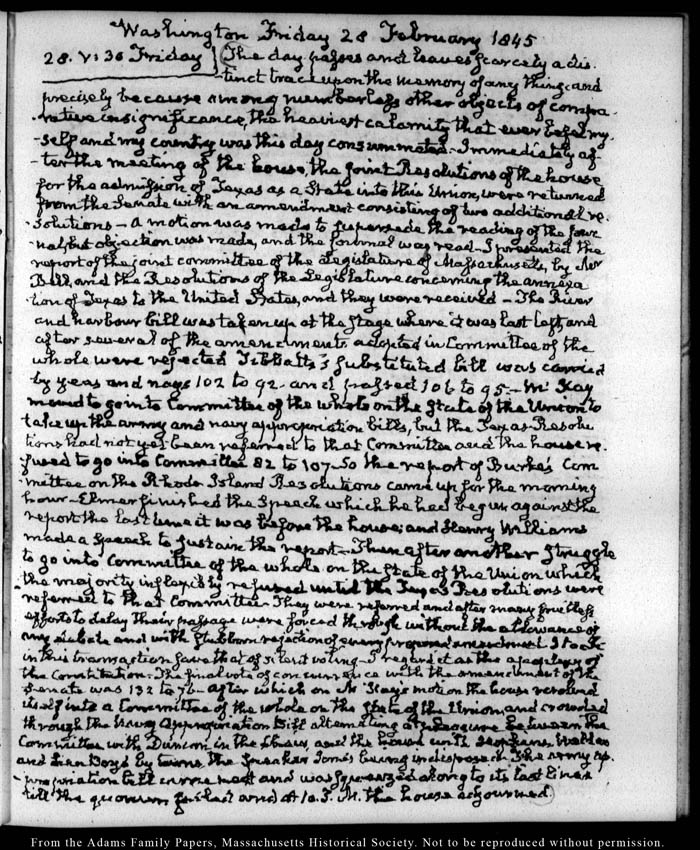 Washington Friday 28 February 1845
28. V: 30 Friday } The day passes and leaves scarcely a dis
tinct trace upon the memory of any thing, and
precisely because among numberless other objects of compa-
-rative insignificance, the heaviest calamity that ever befel my-
-self and my country was this day consummated. Immediately af-
-ter the meeting of the house, the joint Resolutions of the house
for the admission of Texas as a State into this Union, were returned
from the Senate with an amendment consisting of two additional re-
-solutions - A motion was made to supersede the reading of the jour
nal, but objection was made, and the journal was read - I presented the
report of the joint committee of the Legislature of Massachusetts, by Mr
Bell, and the Resolutions of the Legislature concerning the annexa
tion of Texas to the United States, and they were received - The River
and harbour bill was taken up at the stage where it was last left, and
after several of the amendments adopted in Committee of the
whole were rejected Tibbatts's substituted bill was carried
by yeas and nays 102 to 92. and passed 106 to 95. - Mc Kay
moved to go into Committee of the whole on the State of the Union to
take up the army and navy appropriation bills, but the Texas Resolu
tions had not yet been referred to that Committee and the house re-
-fused to go into Committee 82 to 107. So the report of Burke's Com
mittee on the Rhode Island Resolutions came up for the morning
hour - Elmer finished the Speech which he had begun against the
report the last time it was before the house; and Henry Williams
made a Speech to sustain the report - Then after another struggle
to go into Committee of the whole on the State of the Union which
the majority inflexibly refused until the Texas Resolutions were
referred to that Committee. They were referred and after many fruitless
efforts to delay their passage were forced through without the allowance of
any debate and with stubborn rejection of every proposed amendment I took
in this transaction save that of silent voting - I regard it as the apoplexy of
the Constitution. The final vote of concurrence with the amendment of the
Senate was 132 to 76 - after which on Mc Kay's motion the house resolved
itself into a Committee of the whole on the State of the Union and crowded
through the Navy Appropriation Bill alternating at pleasure between the
Committee with Duncan in the Chair, and the house with Hopkins,
and Linn Boyd by turns the Speaker Jones being indisposed. The army ap-
-propriation bill came next and was squeezed along to its last lines
till the quorum failed and at 10 P. M. the house adjourned
From the Adams Family Papers, Massachusetts Historical Society. Not to be reproduced without permission.